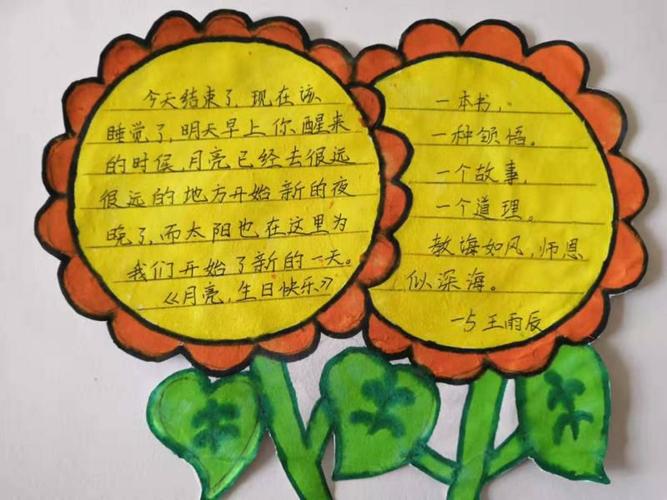 今天结束了,现在该
睡觉了,明天早上你醒来
的时候,月亮已经去很远
很远的地方开始新的夜
晚了,而太阳也在这里为
我们开始了新的一天。
《月亮,生日快乐》
一本书,
一种领悟。
一个故事,
一个道理。
教海如风,师恩
似深海。
一5王雨辰